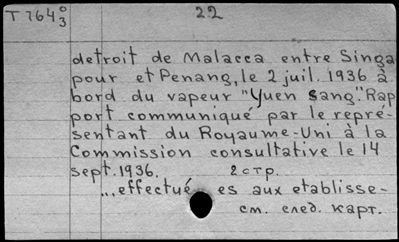 T 764 0/3 22
detroit de Malacca entre Singa
pour et Penang, le 2 juil. 1936 à
bord du vapeur "Yuen Sang". Rap
port communiqué par le repré-
sentant du Royaume-Uni à la
Commission consultative le 14
sept. 1936. 2 стр.
...effectué es aux etablisse-
см. след. карт.